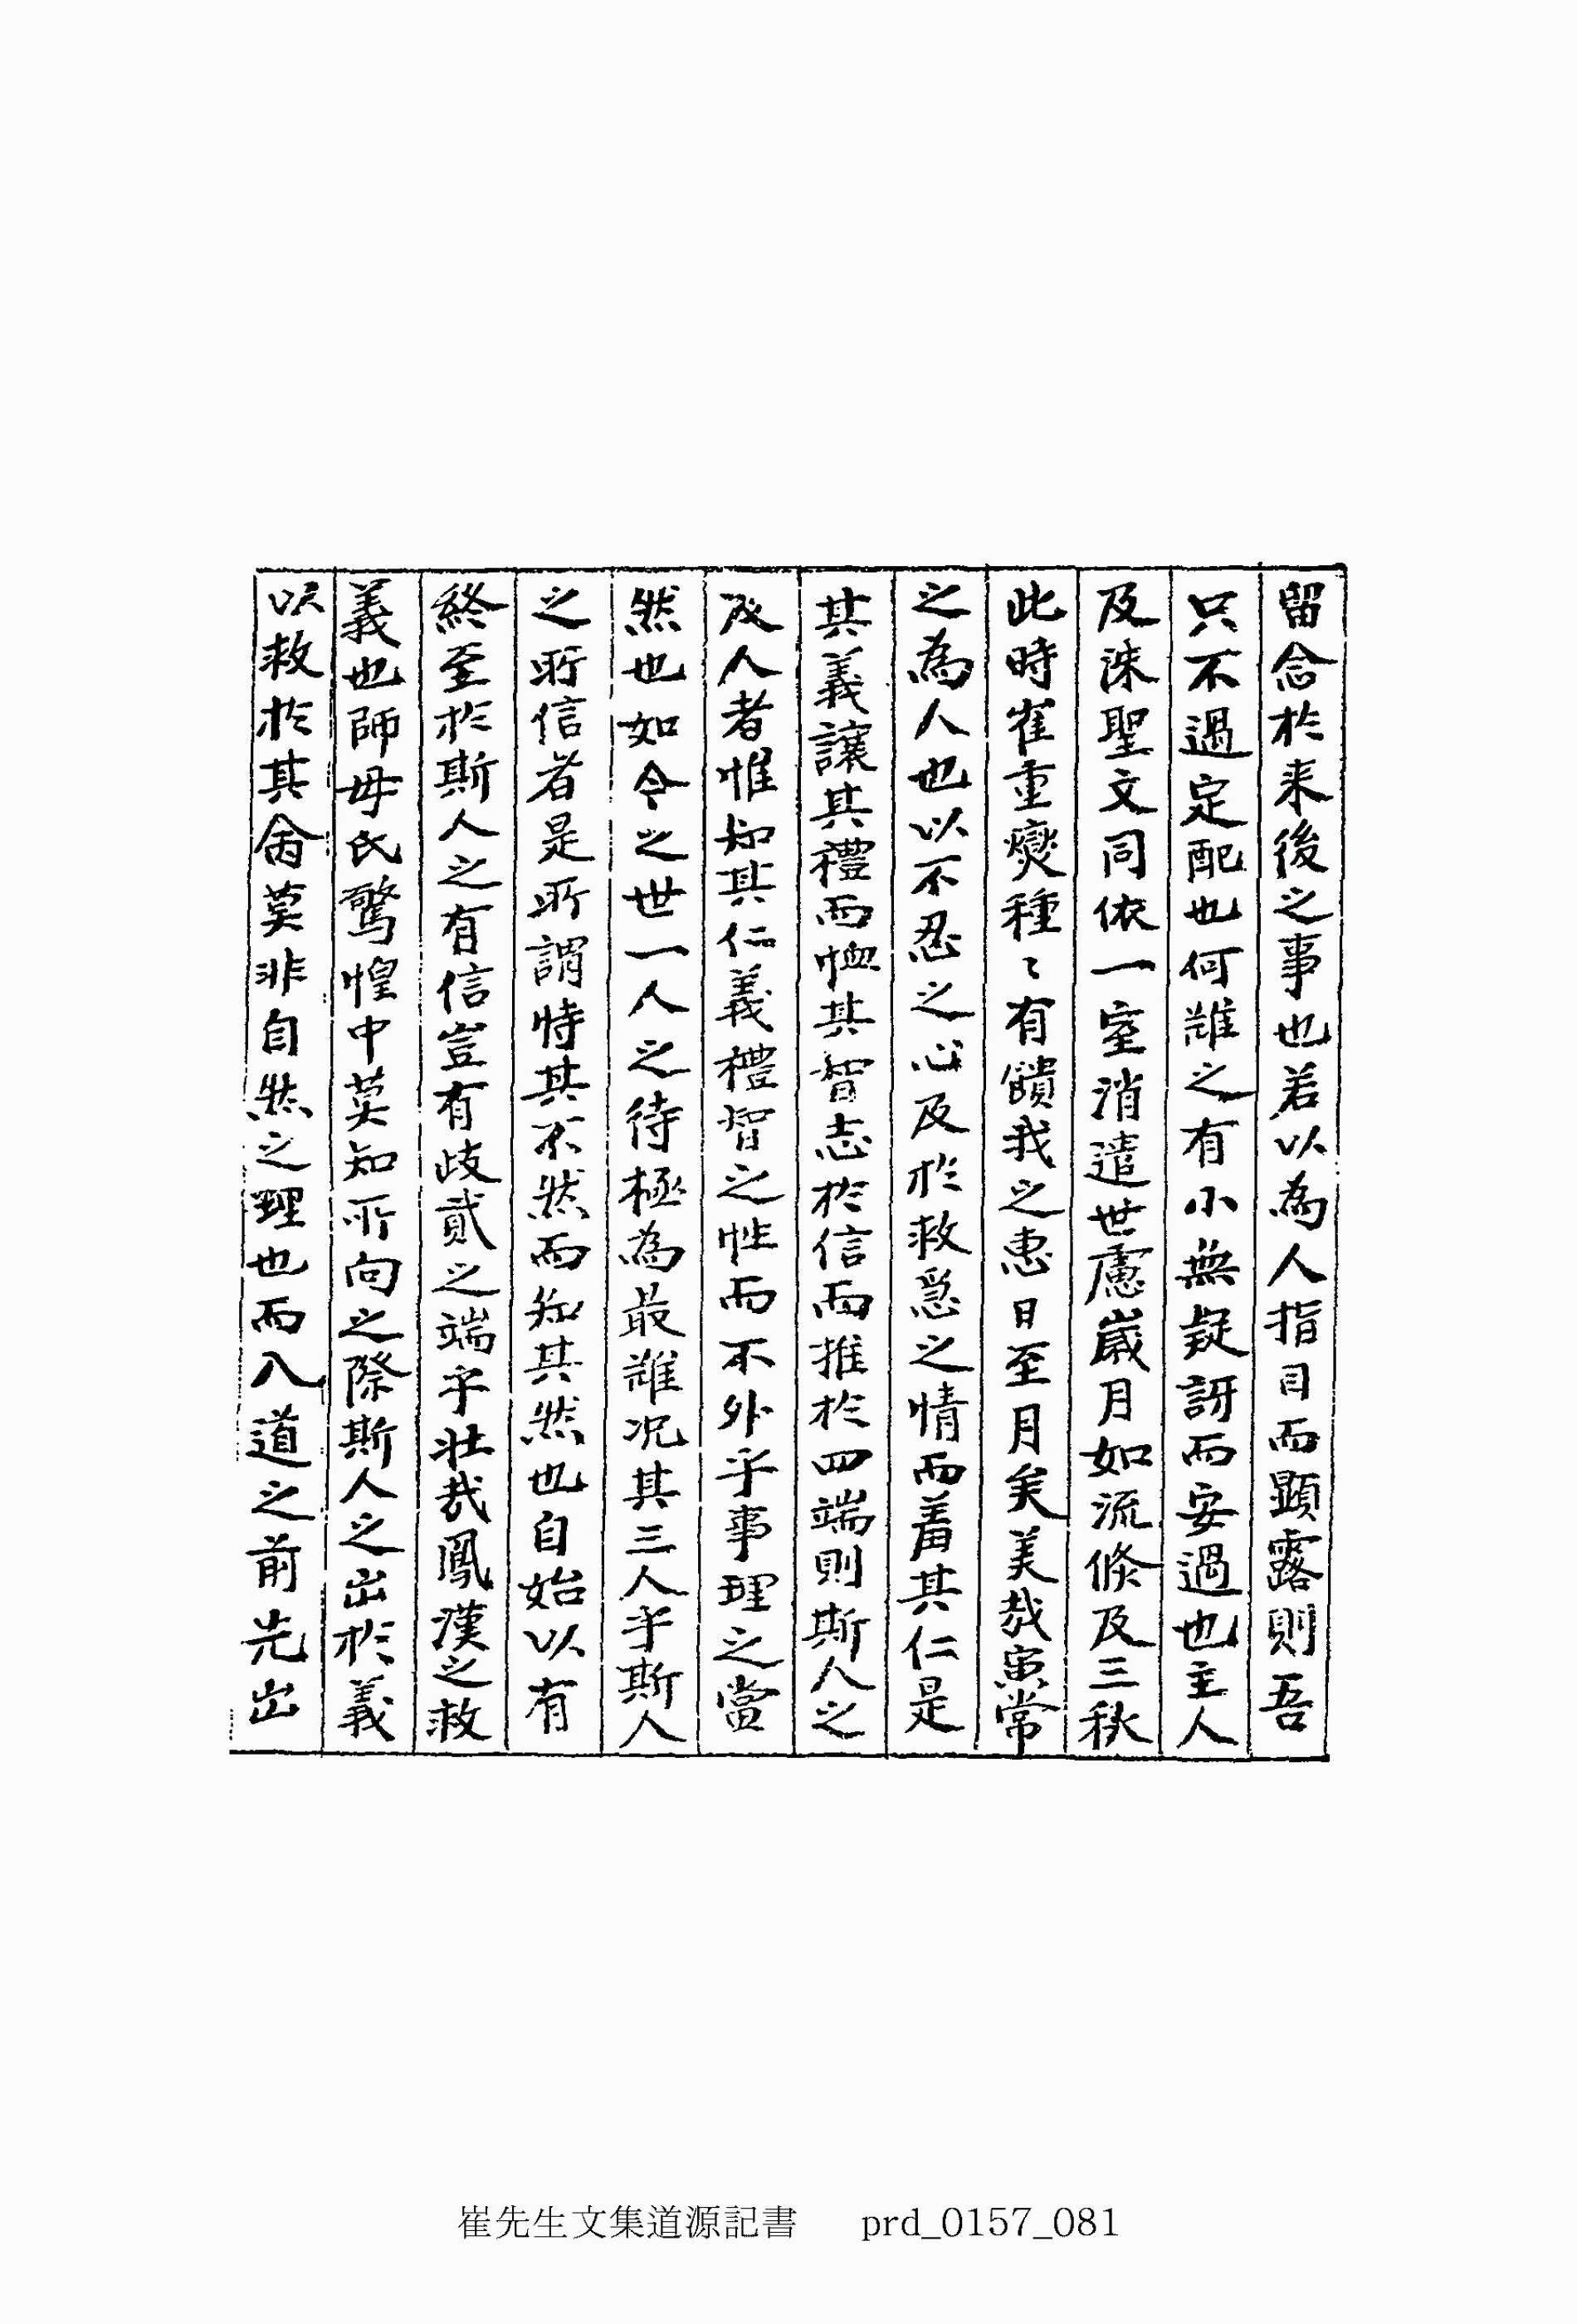 留念於来後之事也若以為人指目而顕露則吾
只不過定配也何難之有小無疑訝而安過也主人
及洙聖文同依一室消遣世慮歲月如流倏及三秋
此時崔重燮種〻有饋我之惠日至月矣美哉寅常
之為人也以不忍之心及於救急之情而羞其仁是
其義讓其禮而恤其智志於信而推於四端則斯人之
及人者惟知其仁義禮智之性而不外乎事理之當
然也如今之世一人之待極為最難况其三人乎斯人
之所信者是所謂恃其不然而知其然也自始以有
終至於斯人之有信豈有歧貳之端乎壮哉鳳漢之救
義也師母氏驚惶中莫知所向之際斯人之出於義
以救於其舍莫非自然之理也而入道之前先出
崔先生文集道源記書 prd_0157_081